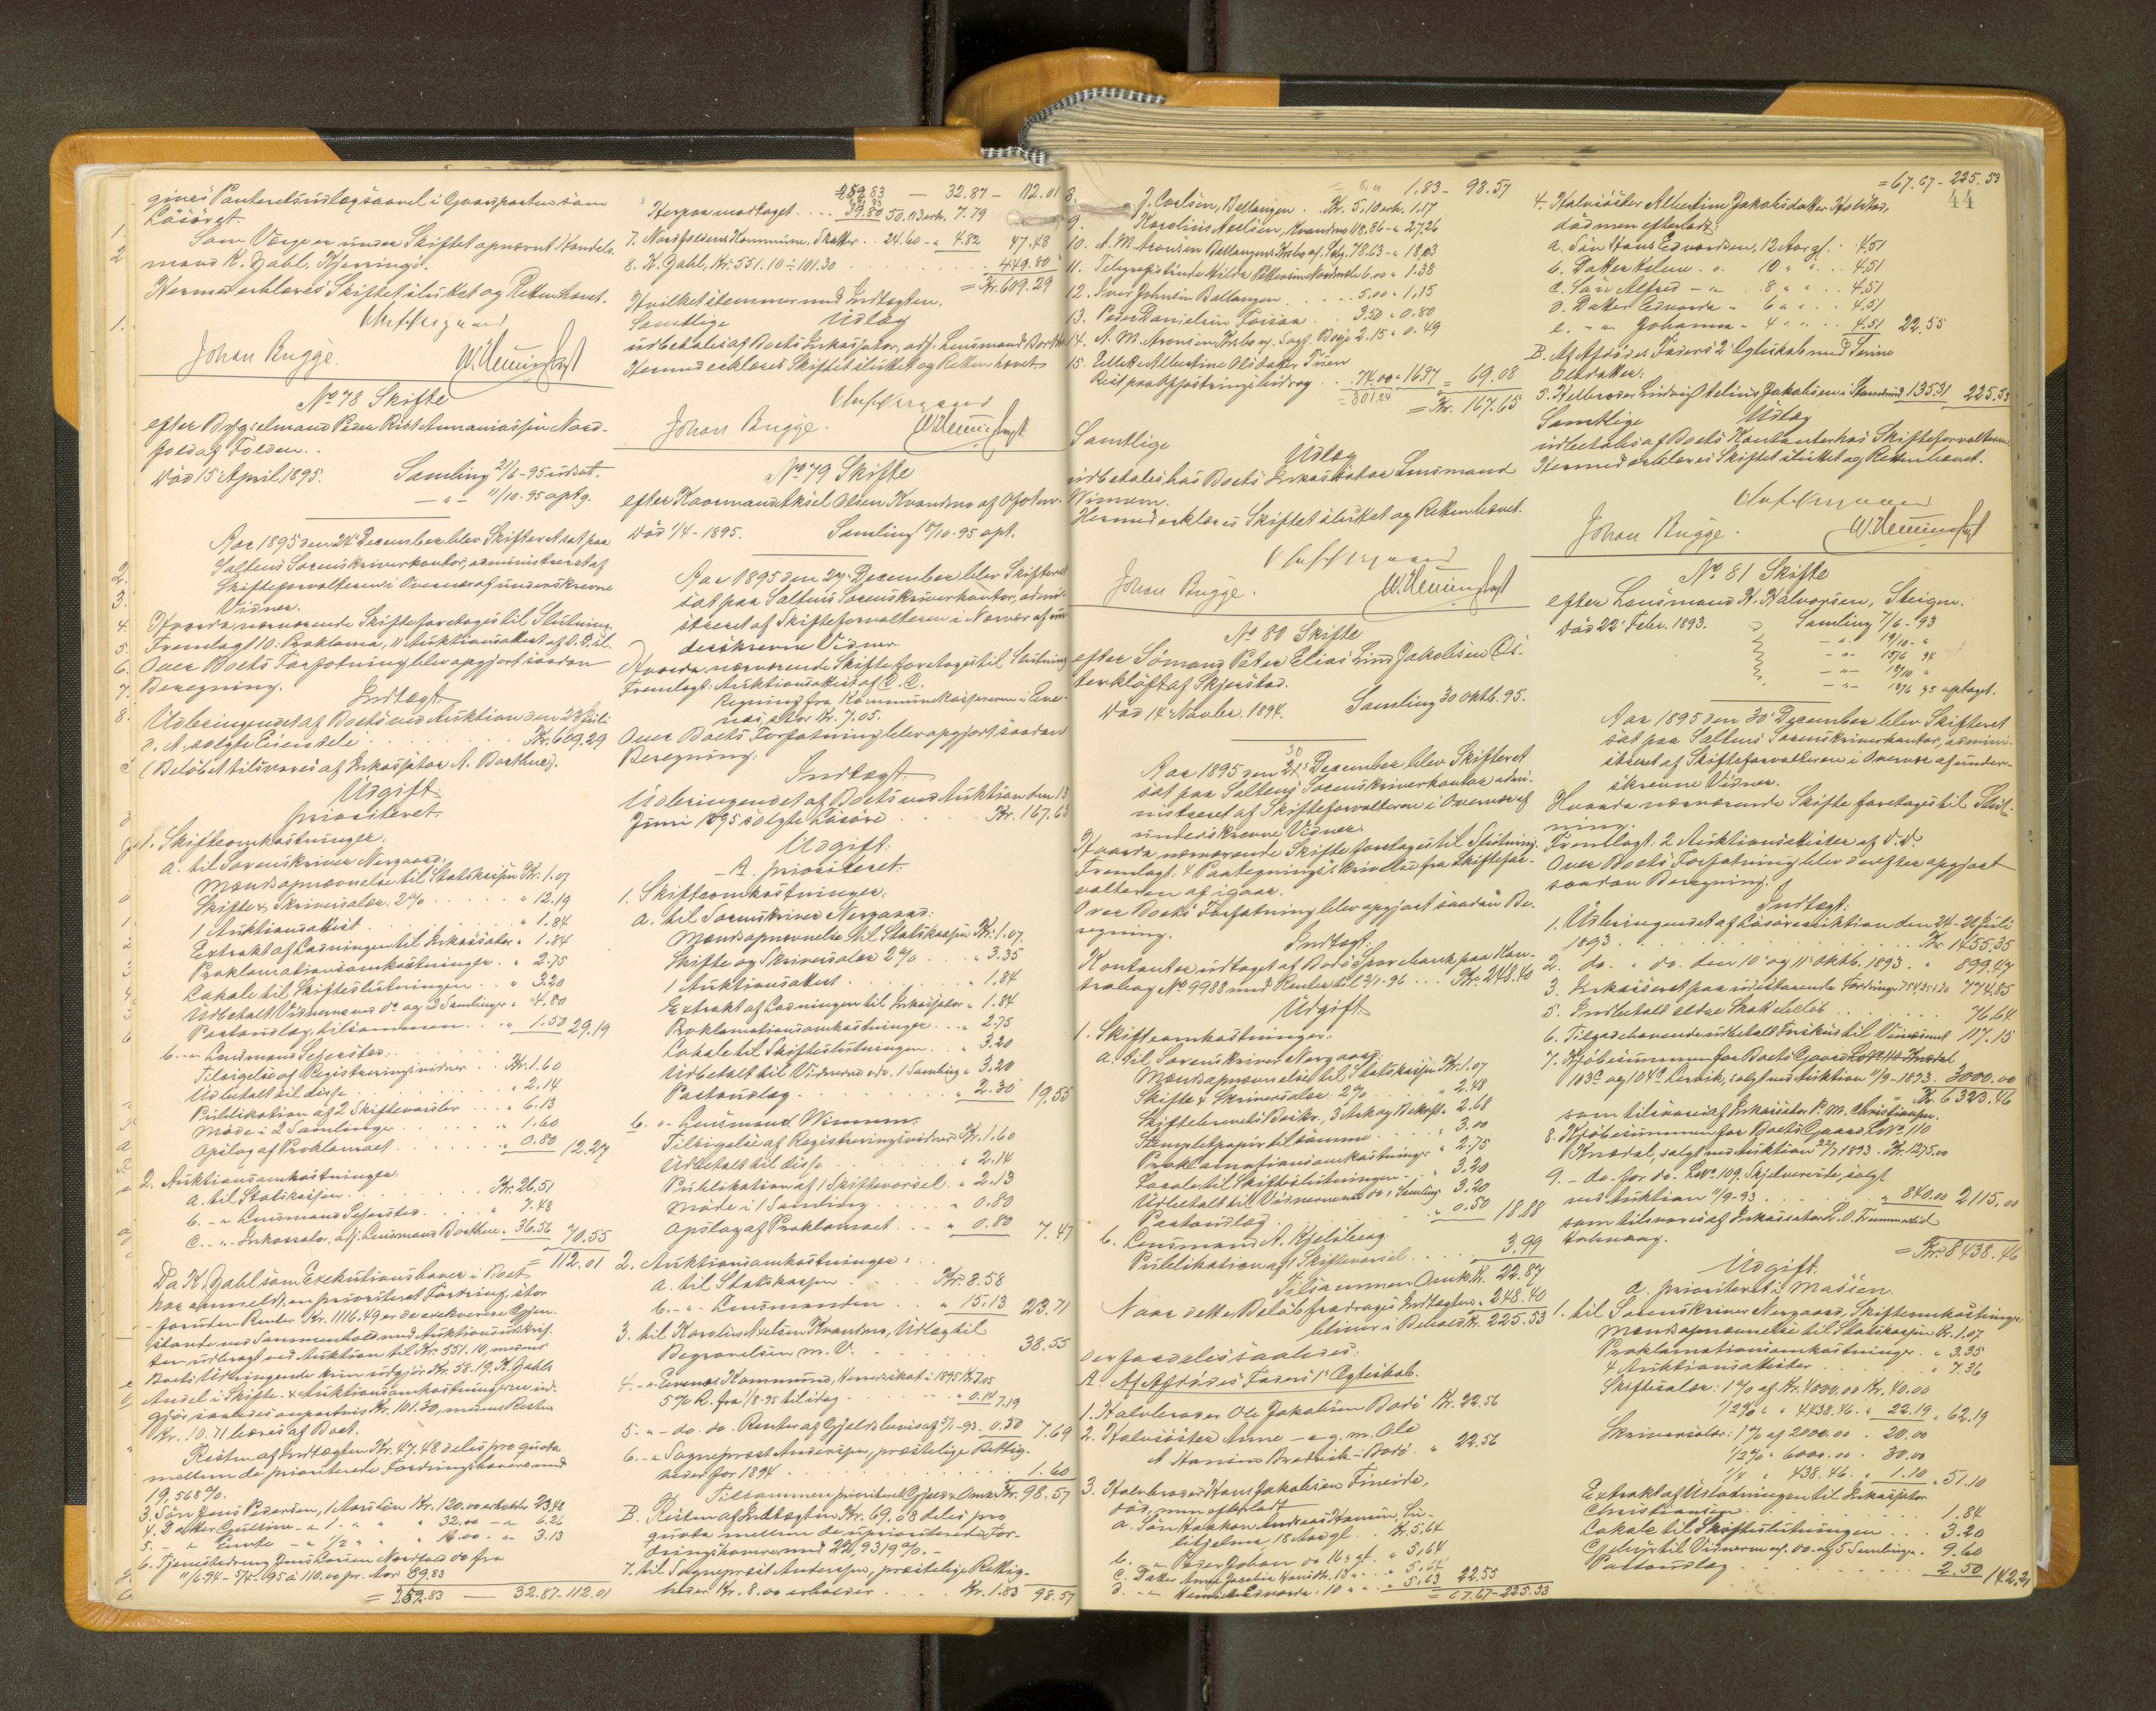 gines Panteretsudlægsaavel i Gaardparten som
Løsøret.
Som Værge er under Skiftet opnævnt Handels-
mand K. Zahl, Kjerringø.
Hermed erklæres Skiftet sluttet og Retten hævet.
Johan Bugge.
No 78 Skifte
efter Bygselmand Peder Rist Annaniassen Nord-
fold af Folden.
Død 15 April 1895. Samling 21/6-95 udsat.
— " — 11/10-95 optg.
Aar 1895 den 24' December blev Skifteret sat paa
Saltens Sorenskriverkontor, administreret af
Skifteforvalteren i Overvær af underskrevne
Vidner.
Hvorda nærværende Skifte foretoges til Slutning.
Fremlagt 10: Proklama, 11 Auktionsattest af d. D. til.
Over Boets Forfatning blev opgjort saadan
Beregning.
Indtægt
Udbringendet af Boets ved Auktion den 23 Juli
d. A. solgte Eiendele Kr. 609.29
(Beløbet tilsvares af Inkassator A. Borthne).
Udgift:
prioriteret.
1. Skifteomkostninger:
a. til Sorenskriver Nergaard.
Mandsopnævnelse til Statskassen Kr. 1.07
Skifte & Skriversalær. 2% " 12.19
1 Auktionsattest " 1.84
Extrakt af Ladningen til Inkassator " 1.84
Proklamationsomkostninger " 2.75
Lokale til Skifteslutningen " 3.20
Udbetalt Vidnerne ved do og 3 Samlinger " 4.80
Postudlæg, tilsammen " 1.50 29.19
b. - " Lensmand Sejersted:
Tilsigelse af Registreringsvidner Kr. 1.60
Udbetalt til disse " 2.14
Publikation af 2 Skiftevarsler " 6.13
Møde i 2 Samlinger " 1.60
Opslag af Proklamaet " 0.80 12.27
2. Auktionsomkostninger
a. til Statskassen Kr. 26.51
b. - " Lensmand Sejersted " 7.48
c. - " Inkassator, adj. Lensmand Borthne " 36.56 70.55
= 112.01
Da K. Zahl som Exekutionshaver i Boet
har anmeldt en prioriteret Fordring, stor
foruden Renter Kr. 1116.49 er de exekverede Gjen-
stande ved Sammenhold med Auktionsudskrif-
ten udbragt ved Auktion til Kr. 551.10, medens
Boets Udbringende kun udgjør Kr. 58.19. K. Zahls
Andel i Skifte- & Auktionsomkostningerne ud-
gjør saaledes anpartvis Kr. 101.30, medens Resten
Kr. 10.71 bæres af Boet.
Resten af Indtægten Kr. 47.48 deles pro quota
mellem de prioriterede Fordringshavere med
19,568%.
3. Søn Jens Pedersen, 1 Aars Løn Kr. 120.00 erholder 23.48
4. Datter Gulline - " 1 - " " " 32.00 - " 6.26
5. - " " - " 1/2 " " " 16.00 - " 3.13
6. Tjenestedreng Jens Larsen Nordfold do fra
11/6 94 - 5/4-95 à 110.00 pr. Aar 89.83
= 259.83 — 32.87 - 112.01
259.83 — 32.87 — 112.01
Herpaa modtaget 39.80 50.03 erh. 7.79
7. Nordfoldens Kommune, Skatter 24.60 - " 4.82 47.48
8. K. Zahl, Kr. 551.10 ÷ 101.30 449.80
= Kr. 609.29
Hvilket stemmer med Indtægten.
Samtlige Udlæg
udbetales af Boets Inkassator, adj. Lensmand Borthne
Hermed erklæres Skiftet sluttet og Retten hævet
Johan Bugge.
No 79 Skifte
efter Kaarmand Axel Olsen Kvandmo af Ofoten.
Død 1/4 - 1895. Samling 18/10-95 opt.
Aar 1895 den 27' December blev Skifteret
sat paa Saltens Sorenskriverkontor, admi-
streret af Skifteforvalteren i Nærvær af un-
derskrevne Vidner
Hvorda nærværende Skifte foretoges til Slutning
Fremlagt: Auktionsattest af D. D.
Regning fra Kommunekassereren i Eve-
næs, stor Kr. 7.05.
Over Boets Forfatning blev opgjort saadan
Beregning:
Indtægt:
Udbringendet af Boets ved Auktion den 13
Juni 1895 solgte Løsøre Kr. 167.65
Udgift:
A. prioriteret:
1. Skifteomkostninger:
a. til Sorenskriver Nergaard:
Mandsopnævnelse til Statskassen Kr. 1.07
Skifte og Skriversalær 2% " 3.35
1 Auktionsattest " 1.84
Extrakt af Ladningen til Inkassator " 1.84
Proklamationsomkostninger " 2.75
Lokale til Skifteslutningen " 3.20
Udbetalt til Vidnerne v. do. 1 Samling " 3.20
Postudlæg " 2.30 19.55
b. - " Lensmand Wimmer
Tilsigelse af Registreringsvidner Kr. 1.60
Udbetalt til disse " 2.14
Publikation af 1 Skiftevarsel " 2.13
Møde i 1 Samling " 0.80
Opslag af Proklamaet " 0.80 7.47
2. Auktionsomkostninger:
a. til Statskassen Kr. 8.58
b. - " Lensmanden " 15.13 23.71
3. til Karolius Axelsen Kvandmo, Udlæg til
Begravelsen m. V. 38.55
4. - " Evenæs Kommune, Herredskat i 1895 Kr 7.05
5% R. fra 1/8-95 til idag " 0.14 7.19
5. - " - do. do. Renter af Gjeldsbevis af 5/1-93 0.50 7.69
6. - " Sogneprest Anderssen, præstelige Rettig-
heder for 1894 1.60
Tilsammen prioriteret Gjeld & Omk. Kr. 98.57
B. Resten af Indtægten Kr. 69,08 deles pro
quota mellem de uprioriterede For-
dringshavere med 22,9319%. -
7. til Sogneprest Anderssen, præstelige Rettig-
heder Kr. 8.00 erholder Kr. 1.83 98.57
1.83 - 98.57
8. J. Carlsen, Ballangen Kr. 5,10 erh. 1.17
9. Karolius Axelsen, Kvandmo 118.86 - " 27.26
10. A. M. Aronsen Ballangens Krsbo af. Solg. 78.63 - " 18.03
11. Telegrafistinde Hilda Pettersen 6.00 " 1.38
12. Iver Johnsen Ballangen 5,00 " 1,15
13. Peder Danielsen 3.50 " 0.80
14. A. M. Aronsen Krsbo 2.15 " 0.49
15. Albertine Olsdatter
Rest paa Opfostringsbidrag 74.00 " 16.97 = 69.08
= 301,24
= Kr. 167.65
Samtlige Udlæg
udbetales hos Boets Inkassator Lensmand
Wimmer.
Hermed erklæres Skiftet sluttet og Retten hævet.
Johan Bugge.
No 80 Skifte
efter Sømand Peter Elias Lind Jakobsen Øs-
terkløft af Skjerstad.
Død 14' Novbr. 1894. Samling 30 Oktb. 95.
30
Aar 1895 den 21' December blev Skifteret
sat paa Saltens Sorenskriverkontor admi-
nistreret af Skifteforvalteren i Overvær af
underskrevne Vidner.
Hvorda nærværende Skifte foretoges til Slutning.
Fremlagt: 4 Paategningsskrivelse fra Skiftefor-
valteren af igaar.
Over Boets Forfatning blev opgjort saadan Be-
regning.
Indtægt:
Kontanter udtaget af Bodø Sparebank paa Kon-
trabog No 9988 med Renter til 2/1-96 Kr. 248.40
Udgift:
1. Skifteomkostninger:
a. til Sorenskriver Nergaard:
Mandsopnævnelse til Statskassen Kr. 1.07
Skifte & Skriversalær. 2% " 2.48
Skiftebrevets Beskr., 3 Ark og Bekræft. " 2.68
Stemplet papir til samme " 3.00
Proklamationsomkostninger " 2.75
Locale til Skifteslutningen " 3.20
Udbetalt til Vidnerne ved do 1 Samling " 3.20
Postudlæg " 0.50 18.88
b. Lensmand A. Kjelsberg:
Publikation af 1 Skiftevarsel 3.99
Tilsammen Omk. Kr. 22.87
Naar dette Beløb fradrages Indtægten " 248.40
bliver i Behold Kr. 225.53
der fordeles saaledes:
A. Af Afdødes Faders 1' Ægteskab.
1. Halvbroder Ole Jakobsen Bodø Kr. 22.56
2. Halvsøster Anne - " g. m. Ole
A. Bodø " 22.56
3. Halvbroder Hans Jakobsen Fineide,
død, men efterladt
a. Søn Haakon Andreas Hansen, Su-
litjelma, 18 Aar gl. Kr. 5,64
b. - " Peder Johan do 16 " gl. " 5,64
c. Datter Anna Hansdtr. 13 " " " 5,64
d. - " 10 " " " 5,63 22.55
= 67.67 - 225.53
= 67.67 - 225.53
44
4. Halvsøster Albertine Jakobsdatter,
død men efterladt:
a. Søn Hans Edvardsen, 12 Aar gl. 4.51
b. Datter Helene - " 10 " " 4.51
c. Søn Alfred - " 8 " " 4.51
d. Datter Edvarda " 6 " " 4.51
e. - " Johanna " 4 " " 4.51 22.55
B. Af Afdødes Faders 2' Ægteskab med Serine
Olsdatter:
5. Helbroder Ludvig Jakobsen 135.31 225.53
Samtlige Udlæg
udbetales af Boets Kontanter hos Skifteforvalteren.
Hermed erklæres Skiftet sluttet og Retten hævet.
Johan Bugge.
No 81 Skifte
efter Lensmand H. Halvorsen, Steigen.
Død 22' Febr. 1893. Samling 7/6-93
- " - 19/10- "
- " - 15/6 94
- " - 18/10 "
- " - 18/6 95 optaget.
Aar 1895 den 30' December blev Skifteret
sat paa Saltens Sorenskriverkontor, admini-
streret af Skifteforvalteren i Overvær af under-
skrevne Vidner.
Hvorda nærværende Skifte foretoges til Slut-
ning.
Fremlagt: 2 Auktionsattester af d. d.
Over Boets Forfatning blev derefter opgjort
saadan Beregning:
Indtægt:
1. Udbringendet af Løsøreauktion den 24-26 Juli
1893 Kr. 1455,35
2. do. " do. den 10' og 11' Oktb. 1893 " 899.47
3. Inkasseret paa udestaaende Fordringer 774.85
5. Indbetalt ældre Skattebeløb 76.64
6. Tilgodehavende udbetalt 117.15
7. Kjøbesummen for Boets Gaard
103c og 104a Lervik, solgt ved Auktion 11/9-1893 3000.00
Kr. 6323.46
som tilsvares af Inkassator P. M. Christiansen.
8. Kjøbesummen for Boets Gaard L.No. 110
Knædal, solgt ved Auktion 22/7 1893. Kr. 1275.00
9. - do. for do. L.No. 109. Skjelvereide, solgt
ved Auktion 11/9-93 " 840.00 2115,00
som tilsvares af Inkassator L. O.
= Kr. 8438.46
Udgift.
A. prioriteret i Massen.
1. til Sorenskriver Nergaard, Skifteomkostninger:
Mandsopnævnelse til Statskassen Kr. 1.07
Proklamationsomkostninger " 3.35
4 Auktionsattester " 7.36
Skiftesalær: 1% af Kr. 4000.00 Kr. 40.00
1/2% " " 4438.46 " 22.19 " 62.19
Skriversalær: 1% af 2000.00 " 20.00
1/2% " 6000.00 " 30.00
1/4 " 438.46 " 1.10 " 51.10
Extrakt af Udladningen til Inkassator
Christiansen 1.84
Lokale til Skifteslutningen 3.20
Gebyr til Vidnerne af. do. og 5 Samlinger 9.60
Postudlæg 2.50 142.21